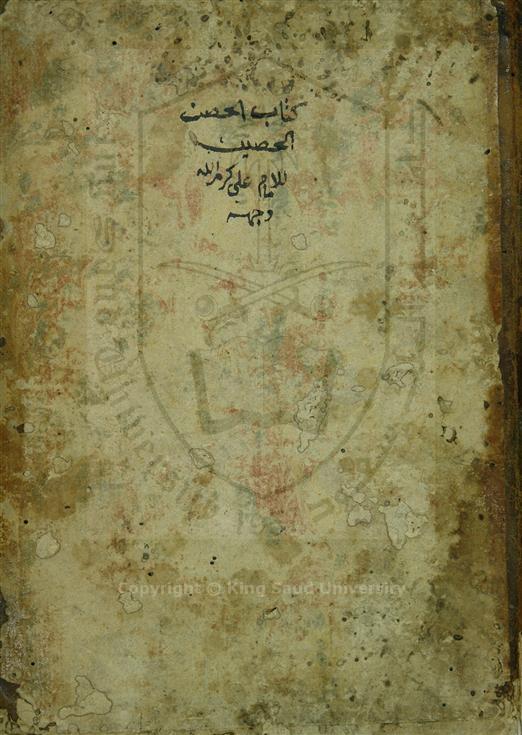 كتاب الحصن
الحصين
للامام علي كرم الله
وجهه
Copyright © King Saud University